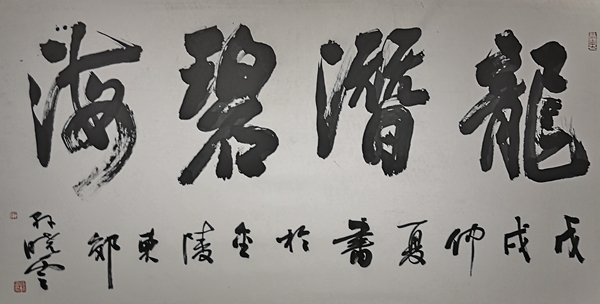 龍潛碧海
戊戌仲夏書於金陵東郊
孙晓云